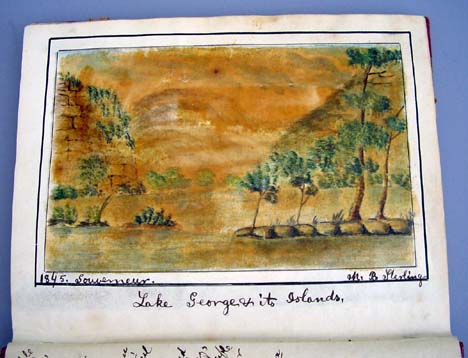 1845. Gouverneur. M. B Sterling
Lake George & its Islands,